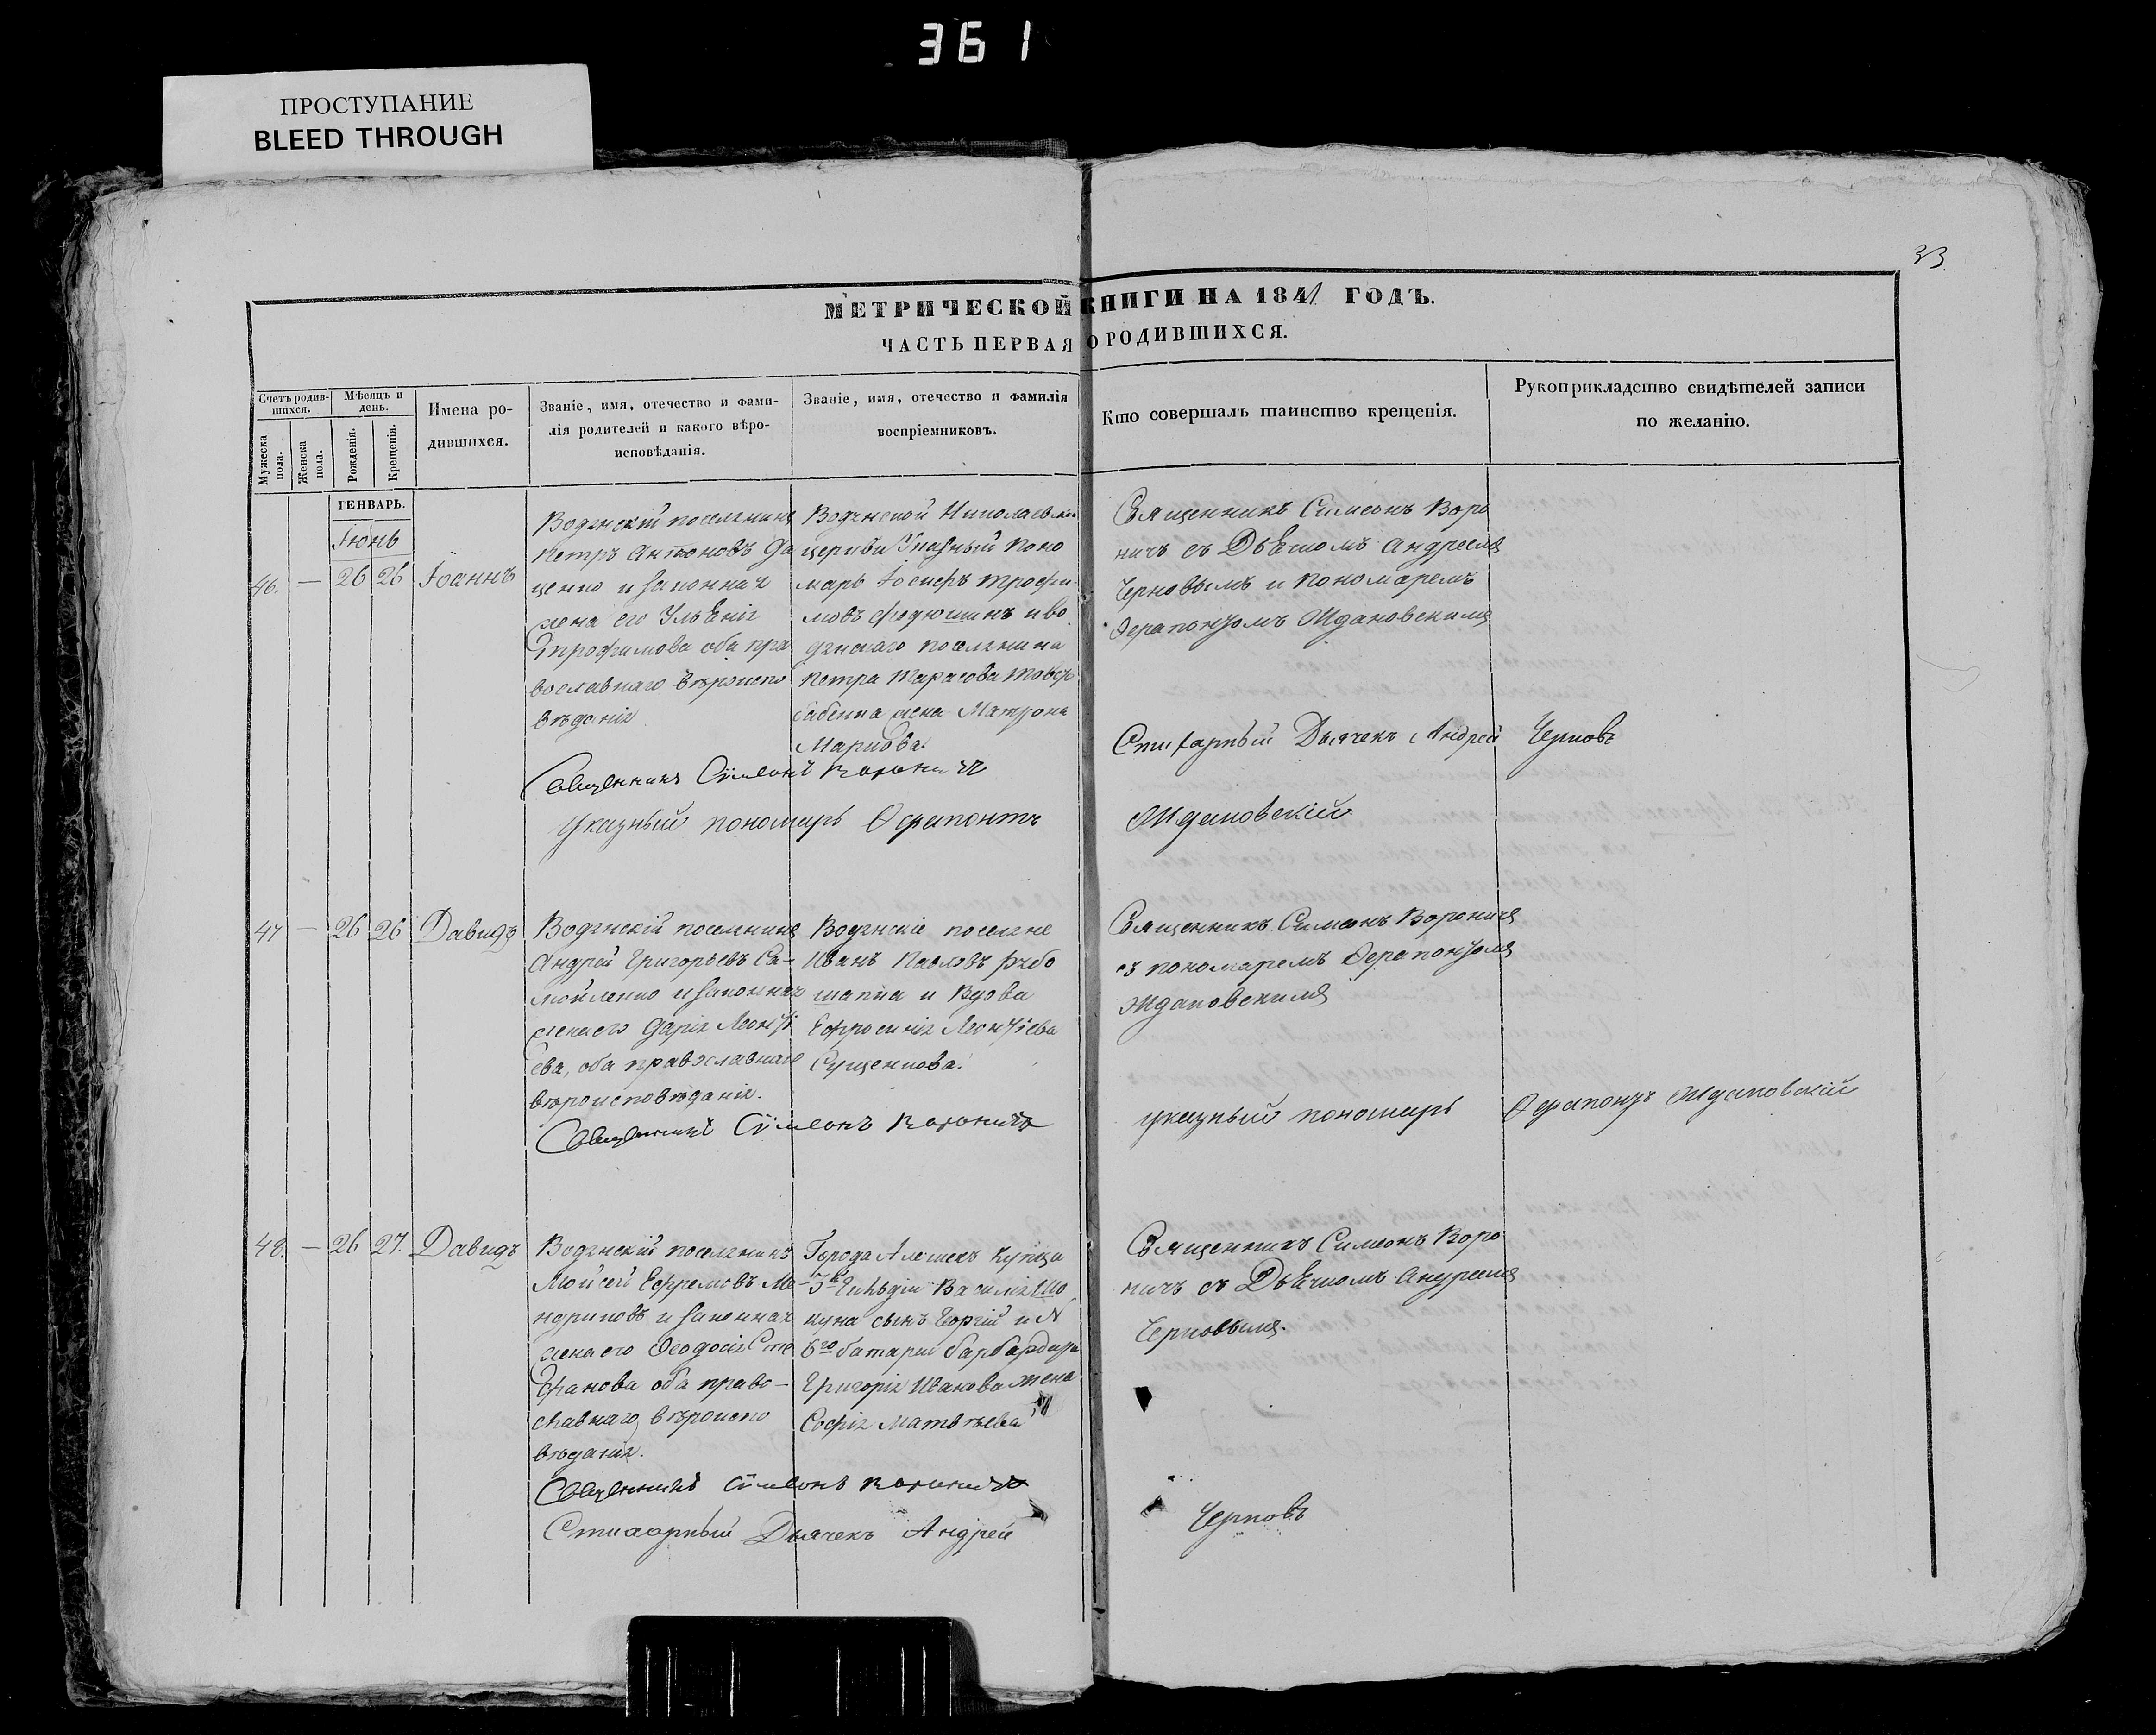 361
ПРОСТУПАНИЕ
BLEED THROUGH
33.
МЕТРИЧЕСКОЙ КНИГИ НА 1841 ГОДЪ.
ЧАСТЬ ПЕРВАЯ О РОДИВШИХСЯ.
Счетъ родившихся.
Мужеска пола.
Женска пола.
Мѣсяцъ и день.
Рожденія.
Крещенія.
Имена родившихся.
Званіе, имя, отечество и фами-
лія родителей и какого вѣро-
исповѣданія.
Званіе, имя, отечество и фамилія
воспріемниковъ.
Кто совершалъ таинство крещенія.
Рукоприкладство свидѣтелей записи
по желанію.
ГЕНВАРЬ.
Іюнь
46. — 26 26 Іоаннъ
Водянскій поселянинъ
Петръ Антоновъ Да
ценко и законная
жена его Ульянія
Трофимова оба пра
вославнаго вѣроиспо
вѣданія
Водянской Николаевской
церкви Указный Поно
марь Іосифъ Трофи-
мовъ Федюшинъ и во
дянскаго поселянина
Петра Тарасова
жена Матрона
Маркова.
Священникъ Симеонъ Воро
ничъ съ Дьячкомъ Андреемъ
Черновымъ и Пономаремъ
Ферапонтомъ Ждановскимъ
Стихарный Дьячекъ Андрей Черновъ
Священникъ Симеонъ Вороничъ
Указный пономарь Ферапонтъ Ждановскій
47 — 26 26 Давидъ
Водянскій поселянинъ
Андрей Григорьевъ Са-
мойленко и законная
жена его Дарія Леонті
ева, оба православнаго
вѣроисповѣданія.
Водянскіе поселяне
Иванъ Павловъ Рябо
шапка и Вдова
Ефросинія Леонтіева
Сущенкова.
Священникъ Симеонъ Вороничъ
съ пономаремъ Ферапонтомъ
Ждановскимъ
Священникъ Симеонъ Вороничъ
указный пономарь Ферапонтъ Ждановскій
48. — 26 27. Давидъ
Водянскій поселянинъ
Мойсей Ефремовъ Ме-
ндриковъ и законная
жена его Феодосія Сте
фанова оба право-
славнаго вѣроиспо
вѣданія.
Города Алешекъ Купца
3й Гильдіи Василія Шо
куна сынъ Георгій и N
6го батареи барбардира
Григорія Иванова жена
Софія Матвѣева
Священникъ Симеонъ Воро
ничъ съ Дьячкомъ Андреемъ
Черновымъ.
Священникъ Симеонъ Вороничъ
Стихарный Дьячекъ Андрей Черновъ